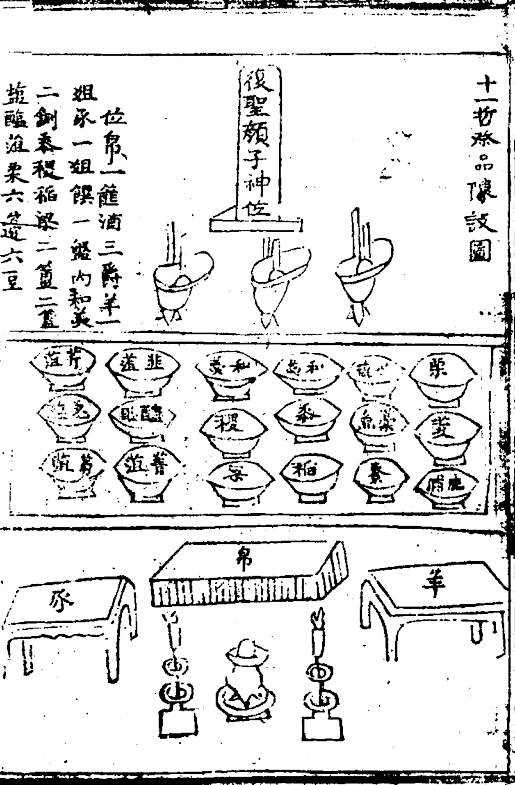 十一哲祭品陳設圖
復聖顏子神位
位帛一篚酒三爵羊一
俎豕一俎饌一盤內和羮
二鉶黍稷稻梁二簠二簋
菹醢菹栗六籩六豆
菹芹
菹韭
羮和
羮和
栗
醢兔
醢醓
稷
黍
魚
菱
菹菁
稻
棗
脯鹿
帛
豕
羊